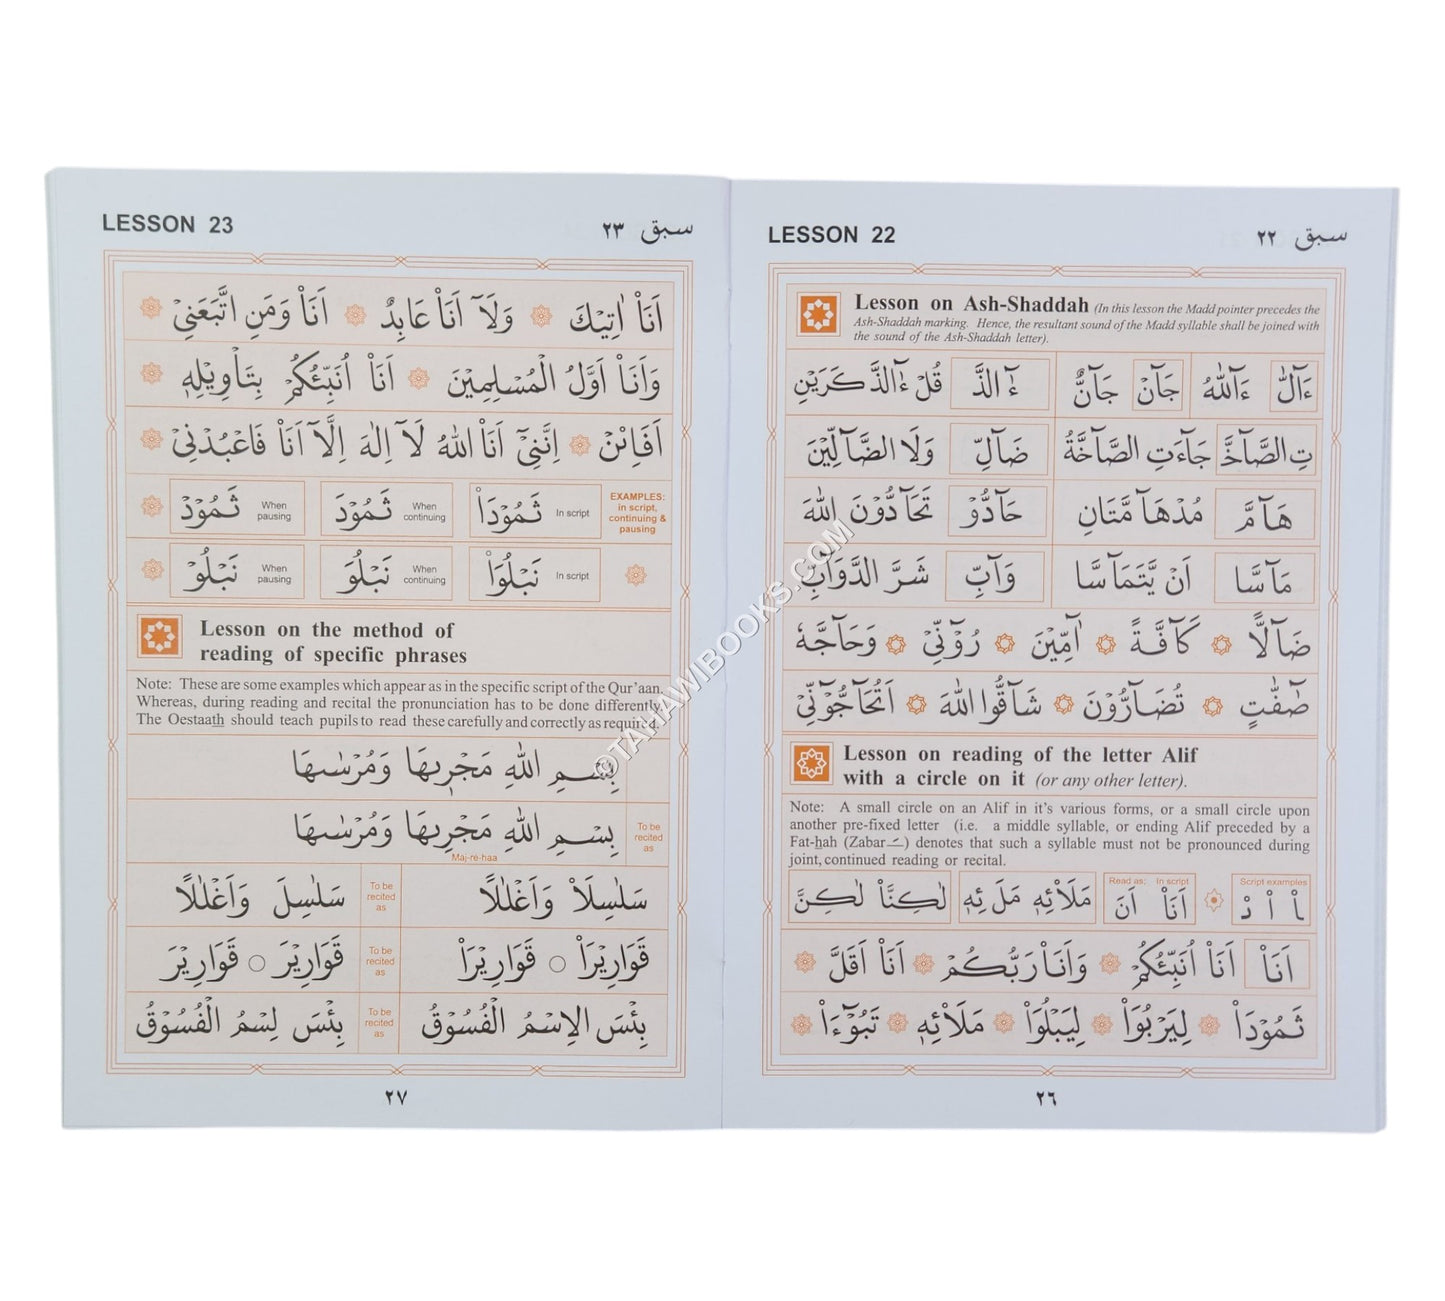 LESSON 22 سبق ٢٢
Lesson on Ash-Shaddah (In this lesson the Madd pointer precedes the
Ash-Shaddah marking. Hence, the resultant sound of the Madd syllable shall be joined with
the sound of the Ash-Shaddah letter).
ءَآلّٰ ءَآللّٰهُ جَآنّْ جَآنٌّ ءٰٓالذَّ قُلْ ءٰٓالذَّكَرَيْنِ
تِ الصَّآخَّ جَآءَتِ الصَّآخَّةُ ضَآلِّ وَلَا الضَّآلِّيْنَ
هَآمَّ مُدْهَآمَّتَانِ حَآدُّوْ تَحَآدُّوْنَ اللّٰهَ
مَآسَّا اَنْ يَّتَمَآسَّا وَآبِّ شَرَّ الدَّوَآبِّ
ضَآلًّا كَآفَّةً آٰمِّيْنَ رُوْٓنِّيْ وَحَآجَّهٗ
صٰٓفّٰتٍ تُضَآرُّوْنَ شَآقُّوا اللّٰهَ اَتُحَآجُّوْٓنِّيْ
Lesson on reading of the letter Alif
with a circle on it (or any other letter).
Note: A small circle on an Alif in it's various forms, or a small circle upon
another pre-fixed letter (i.e. a middle syllable, or ending Alif preceded by a
Fat-hah (Zabar ـَ) denotes that such a syllable must not be pronounced during
joint, continued reading or recital.
Script examples In script Read as:
اَنَا۟ اَنَ مَلَا۟ئِهٖ مَلَئِهٖ لٰكِنَّا۟ لٰكِنَّ
اَنَا۟ اَنَا۟ اُنَبِّئُكُمْ وَاَنَا۟ رَبُّكُمْ اَنَا۟ اَقَلَّ
ثَمُوْدَا۟ لِيَرْبُوَا۟ لِيَبْلُوَا۟ مَلَا۟ئِهٖ تَبُوْٓءَا۟
٢٦
LESSON 23 سبق ٢٣
اَنَا۟ اٰتِيْكَ وَلَآ اَنَا۟ عَابِدٌ اَنَا۟ وَمَنِ اتَّبَعَنِيْ
وَاَنَا۟ اَوَّلُ الْمُسْلِمِيْنَ اَنَا۟ اُنَبِّئُكُمْ بِتَاْوِيْلِهٖ
اَفَا۟ئِنْ اِنَّنِيْٓ اَنَا۟ اللّٰهُ لَآ اِلٰهَ اِلَّآ اَنَا۟ فَاعْبُدْنِيْ
EXAMPLES:
in script,
continuing &
pausing
In script ثَمُوْدَا۟ When continuing ثَمُوْدَ When pausing ثَمُوْدْ
In script نَبْلُوَا۟ When continuing نَبْلُوَ When pausing نَبْلُوْ
Lesson on the method of
reading of specific phrases
Note: These are some examples which appear as in the specific script of the Qur'aan.
Whereas, during reading and recital the pronunciation has to be done differently.
The Oestaath should teach pupils to read these carefully and correctly as required.
بِسْمِ اللّٰهِ مَجْرٖىهَا وَمُرْسٰىهَا
To be recited as بِسْمِ اللّٰهِ مَجْرِيهَا وَمُرْسٰىهَا
Maj-re-haa
سَلٰسِلَا۟ وَاَغْلٰلًا To be recited as سَلٰسِلَ وَاَغْلٰلًا
قَوَارِيْرَا۟ ○ قَوَارِيْرَا۟ To be recited as قَوَارِيْرَ ○ قَوَارِيْرَ
بِئْسَ الِاسْمُ الْفُسُوْقُ To be recited as بِئْسَ لِسْمُ الْفُسُوْقُ
٢٧
©TAHAWIBOOKS.COM